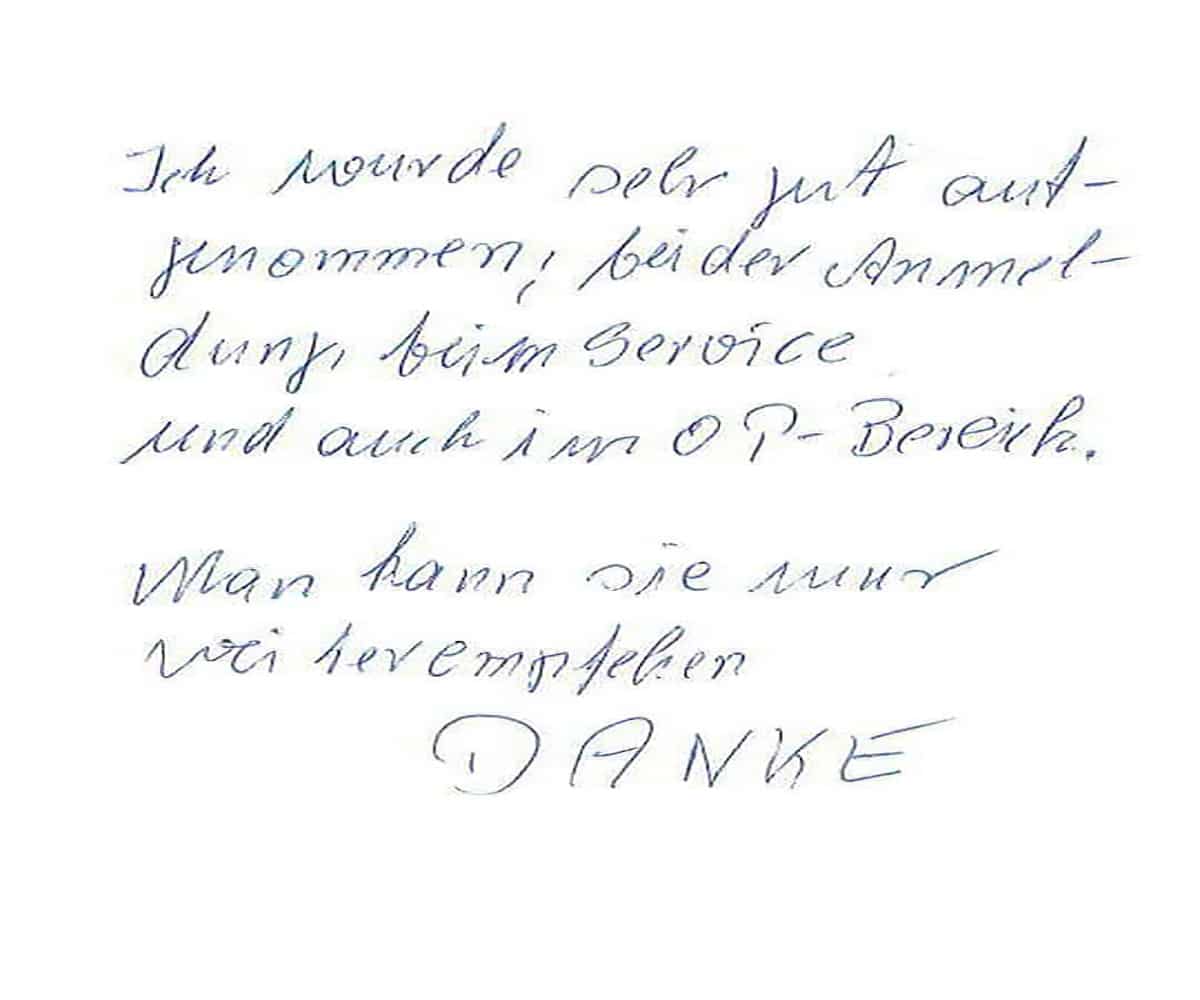 Ich wurde sehr gut auf-
genommen, bei der Anmel-
dung, beim Service
und auch im OP-Bereich.
Man kann sie nur
weiterempfehlen
DANKE